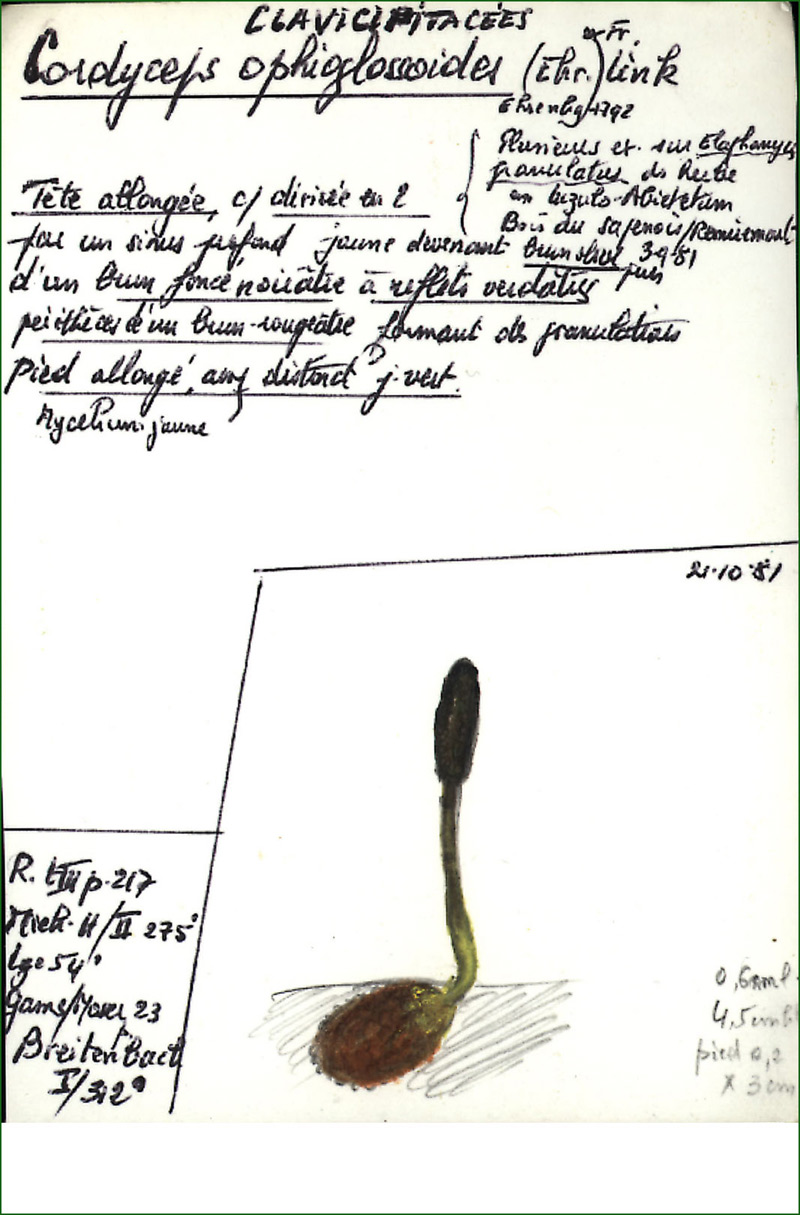 CLAVICIPITACÉES
Cordyceps ophioglossoides (Ehr.) Link
ex Fr.
Ehrenbg 1792
Plusieurs et. sur Elaphomyces
granulatus de Recke
en Luzulo-Abietetum
Bois du Sapenois/Remiremont
3-9-81
Tête allongée, c/ divisée en 2
par un sinus profond jaune devenant brun puis
d'un brun foncé noirâtre à reflets verdâtres
périthèces d'un brun-rougeâtre formant des granulations
Pied allongé, assez distinct j-vert.
Mycelium jaune
21-10-81
R. tIII p. 217
Mich. II/II 275
Lge 54
Gams/Moser 23
Breitenbach
I/312
0,6cm l
4,5cm h
pied 0,2
x 3 cm